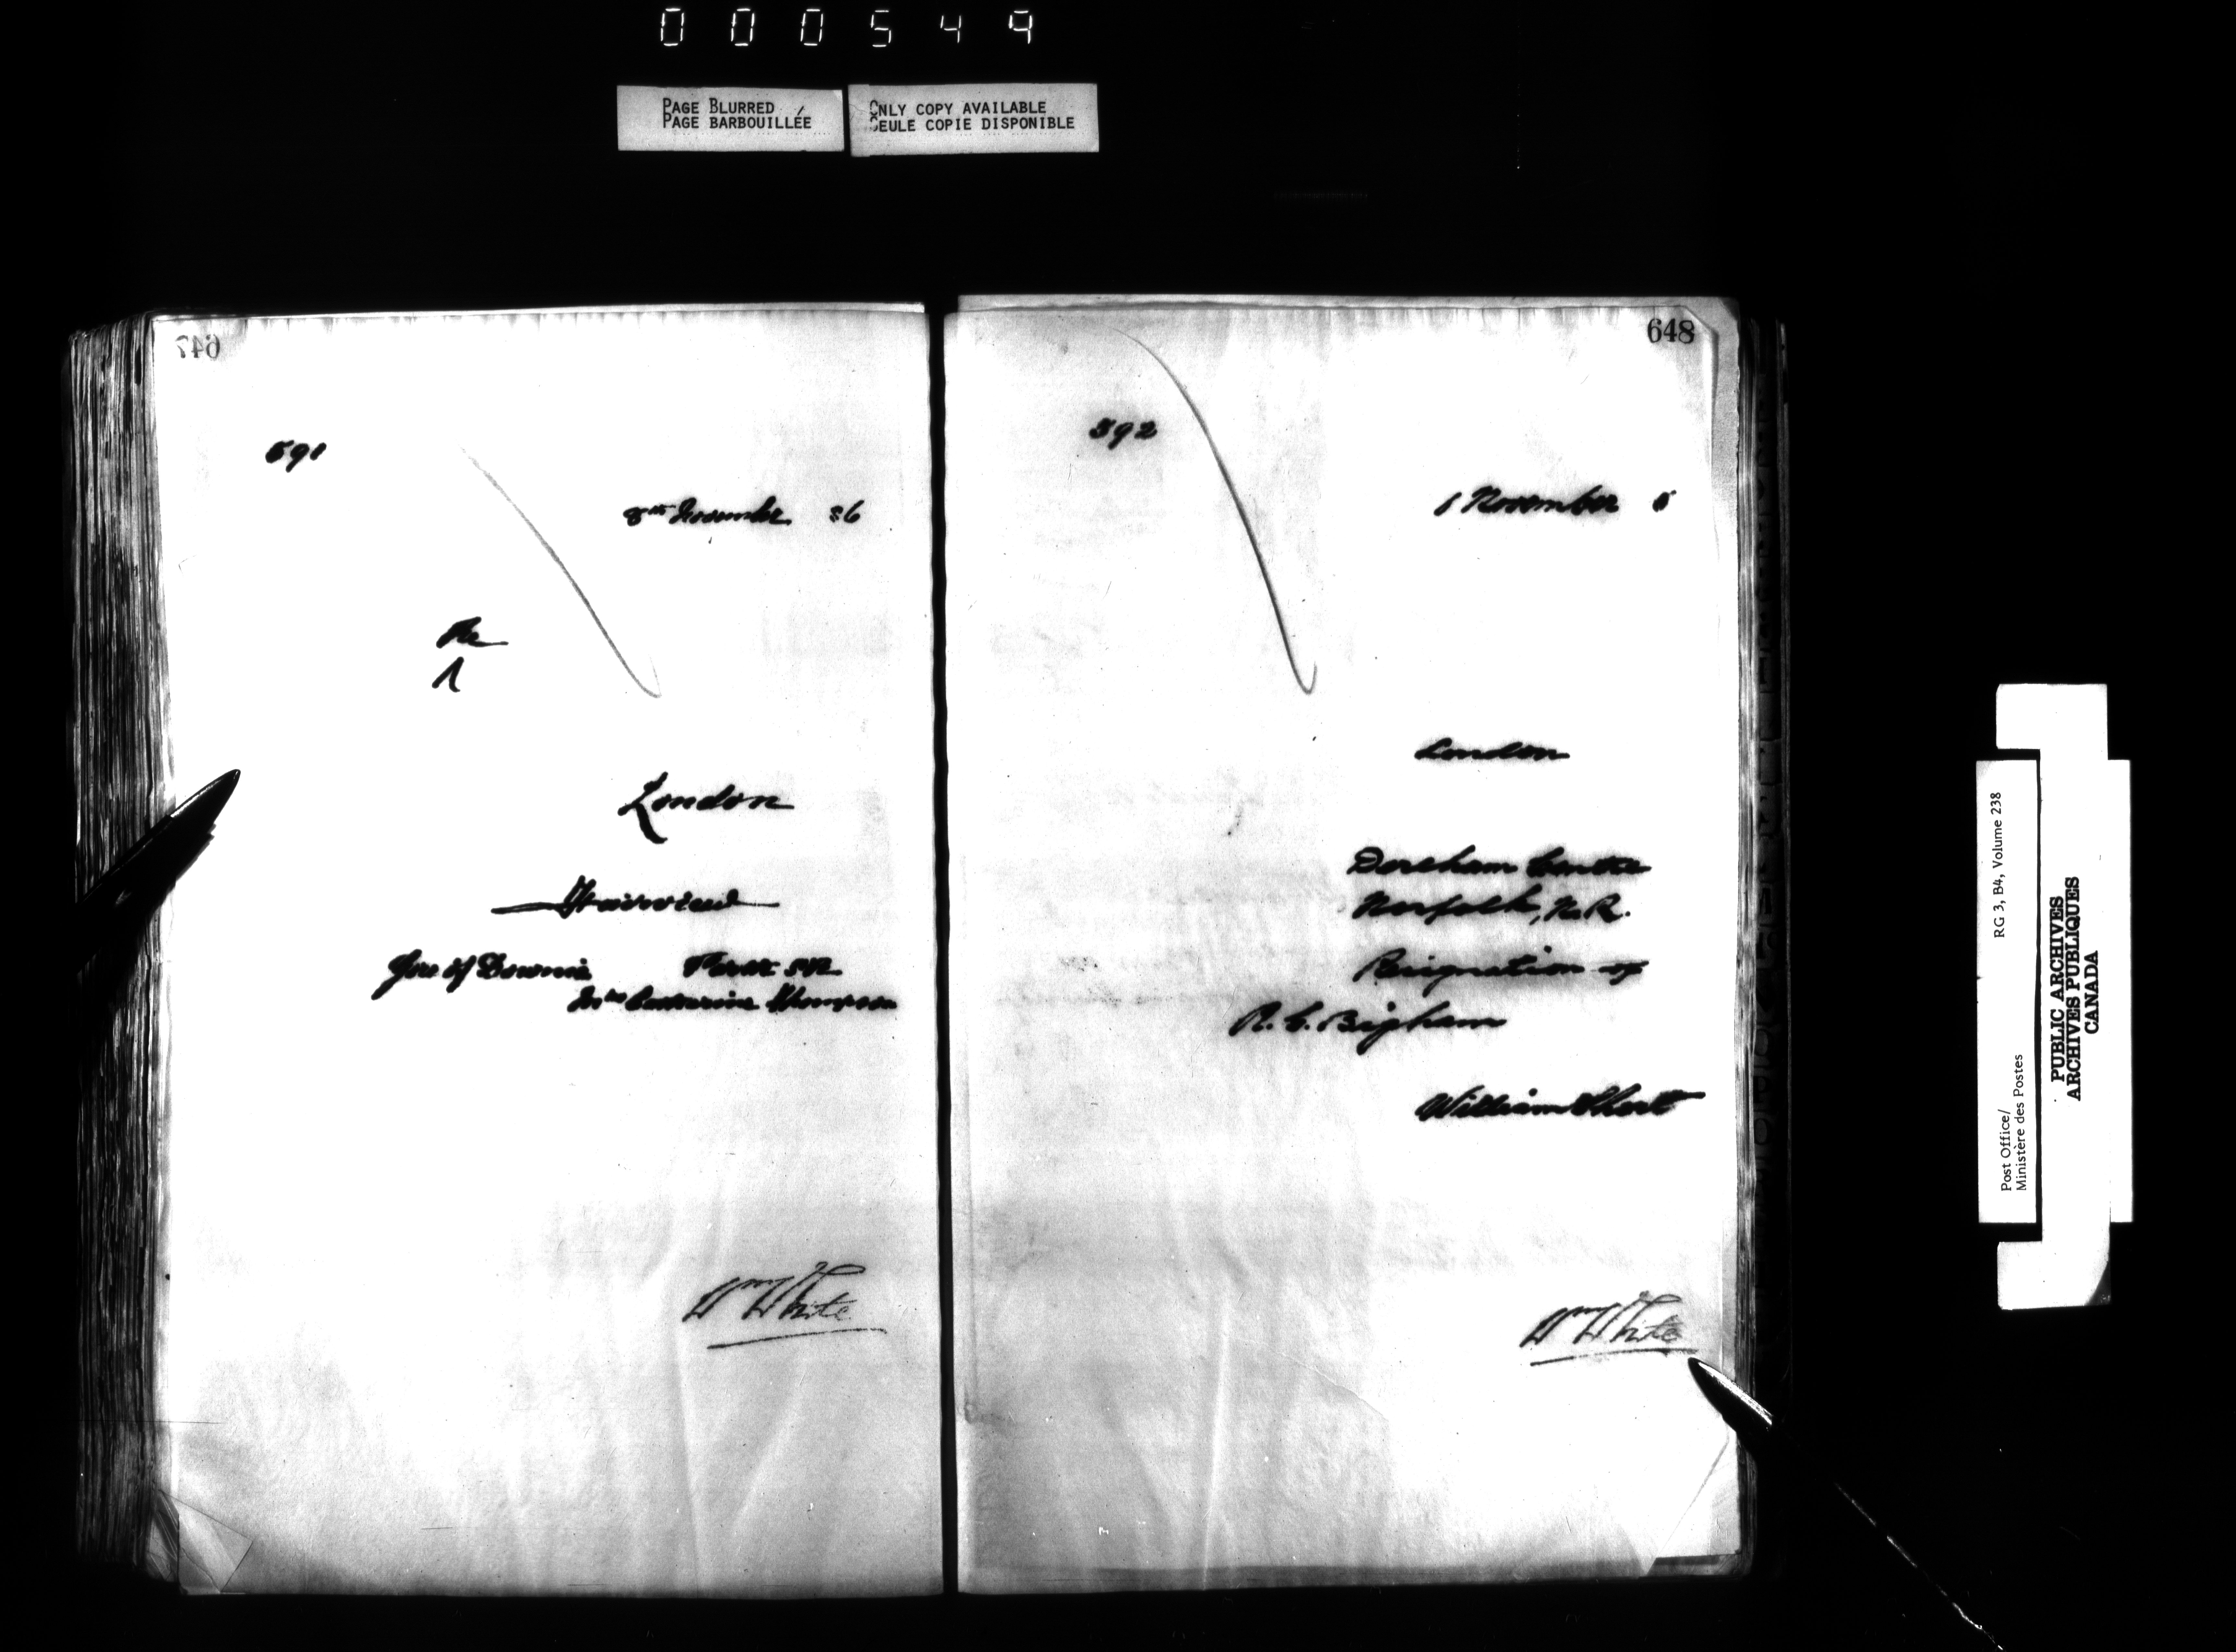 000549
PAGE BLURRED
PAGE BARBOUILLÉE
ONLY COPY AVAILABLE
SEULE COPIE DISPONIBLE
647
591
8th November 86
London
Fairview
Gore of Downie Perth S.R.
Mrs Catherine Thompson
Wm White
648
592
1 November 6
London
Dereham Centre
Norfolk, N.R.
Resignation of
R. C. Bigham
William Short
Wm White
Post Office/
Ministère des Postes
RG 3, B4, Volume 238
PUBLIC ARCHIVES
ARCHIVES PUBLIQUES
CANADA